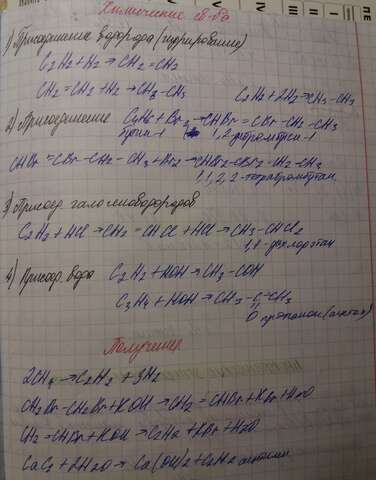 Химические св-ва
1) Присоединение водорода (гидрирование)
C2H2+H2 → CH2=CH2
CH2=CH2+H2 → CH3-CH3 C2H2+2H2 → CH3-CH3
2) Присоединение C4H6+Br2 → CHBr=CBr-CH2-CH3
бутин-1 1,2-дибромбутен-1
CHBr=CBr-CH2-CH3+Br2 → CHBr2-CBr2-CH2-CH3
1,1,2,2-тетрабромбутан
3) Присоед. галогеноводородов
C2H2+HCl → CH2=CHCl+HCl → CH3-CHCl2
1,1-дихлорэтан
4) Присоедр. воды C2H2+HOH → CH3-COH
C3H4+HOH → CH3-C-CH3
O пропанон (ацетон)
Получение
2CH4 → C2H2+3H2
CH2Br-CH2Br+KOH → CH2=CHBr+KBr+H2O
CH2=CHBr+KOH → C2H2+KBr+H2O
CaC2+2H2O → Ca(OH)2+C2H2